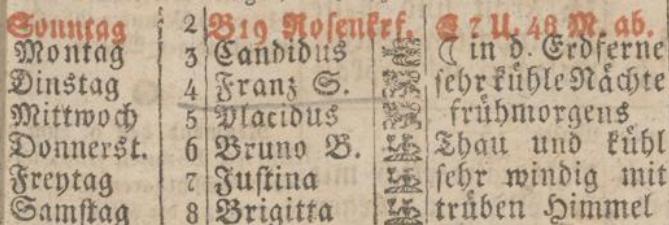 Sonntag 2 B19 Rosenkrf. E 7 U. 48 M. ab.
Montag 3 Candidus ☾ in d. Erdferne
Dinstag 4 Franz S. sehr kühle Nächte
Mittwoch 5 Placidus frühmorgens
Donnerst. 6 Bruno B. Thau und kühl
Freytag 7 Justina sehr windig mit
Samstag 8 Brigitta trüben Himmel